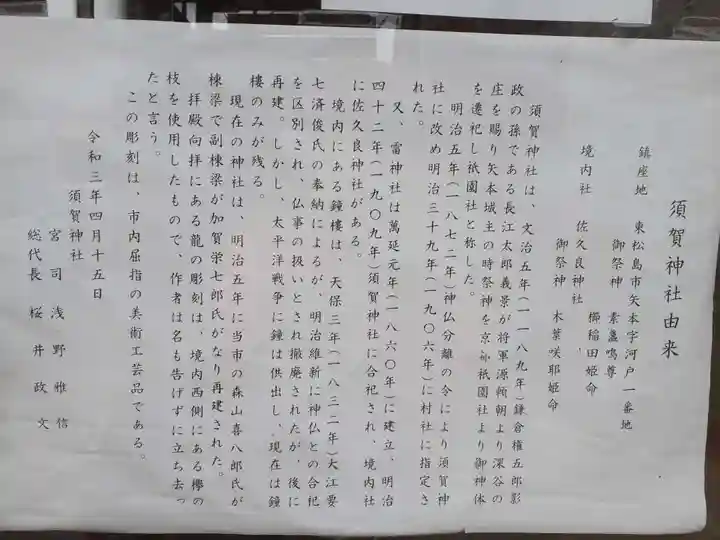 須賀神社由来
鎮座地　東松島市矢本字河戸一番地
御祭神　素盞鳴尊
櫛稲田姫命
境内社　佐久良神社
御祭神　木葉咲耶姫命
須賀神社は、文治五年(一一八九年)鎌倉権五郎影
政の孫である長江太郎義景が将軍源頼朝より深谷の
庄を賜り矢本城主の時祭神を京都祇園社より御神体
を遷祀し祇園社と称した。
明治五年(一八七二年)神仏分離の令により須賀神
社に改め明治三十九年(一九〇六年)に村社に指定さ
れた。
又、雷神社は萬延元年(一八六〇年)に建立、明治
四十二年(一九〇九年)須賀神社に合祀され、境内社
に佐久良神社がある。
境内にある鐘樓は、天保三年(一八三二年)大江要
七済俊氏の奉納によるが、明治維新に神仏との合祀
を区別され、仏事の扱いとされ撤廃されたが、後に
再建。しかし、太平洋戦争に鐘は供出し、現在は鐘
樓のみが残る。
現在の神社は、明治五年に当市の森山喜八郎氏が
棟梁で副棟梁が加賀栄七郎氏がなり再建された。
拝殿向拝にある龍の彫刻は、境内西側にある欅の
枝を使用したもので、作者は名も告げずに立ち去っ
たと言う。
この彫刻は、市内屈指の美術工芸品である。
令和三年四月十五日
須賀神社
宮司　浅野雅信
総代長　桜井政文